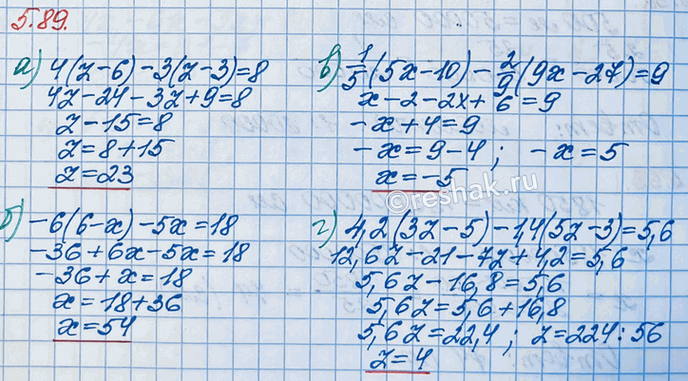 5.89.
а) 4(z-6)-3(z-3)=8
4z-24-3z+9=8
z-15=8
z=8+15
z=23
б) -6(6-x)-5x=18
-36+6x-5x=18
-36+x=18
x=18+36
x=54
в) 1/5(5x-10)-2/9(9x-27)=9
x-2-2x+6=9
-x+4=9
-x=9-4; -x=5
x=-5
г) 4,2(3z-5)-1,4(5z-3)=5,6
12,6z-21-7z+4,2=5,6
5,6z-16,8=5,6
5,6z=5,6+16,8
5,6z=22,4; z=224:56
z=4
©reshak.ru